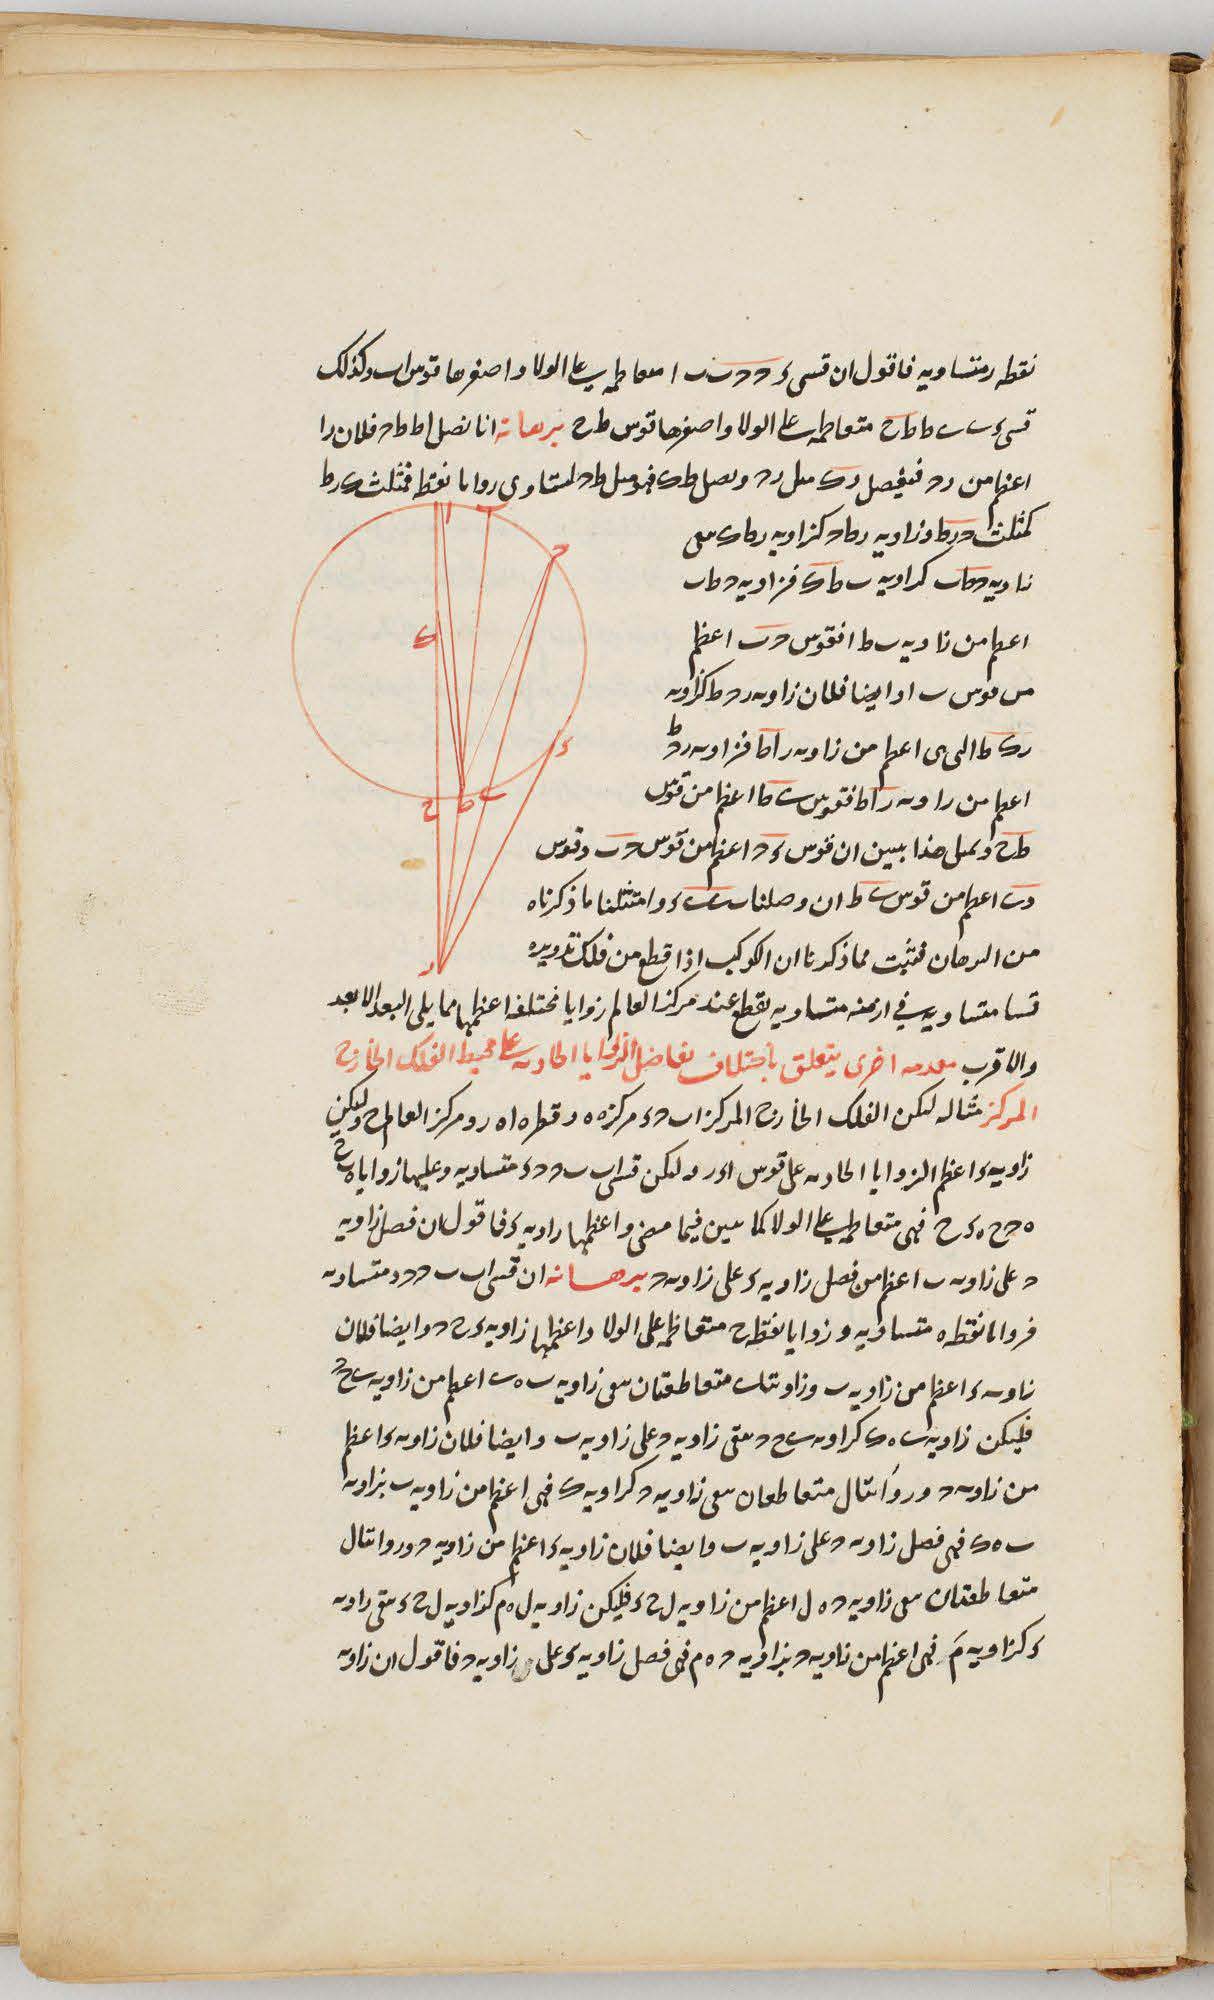 نقطه ر متساويه فاقول ان قسى ء د د ح ب ا متعاظمه على الولا واصغرها قوس ا ب وكذلك
قسى ى ط ط ح متعاظمه على الولا واصغرها قوس ط ح برهانه انا نصل ا ط ط ح فلان را
اعظم من رح فيفصل رك مثل رح ونصل ط ك فهو مثل ط ح لتساوى زوايا نقطه فمثلث ك ر ط
كمثلث ح ر ط وزاويه ر ط ح كزاويه ر ط ك
زاويه ح ط ب كزاويه ب ط ك فزاويه ح ط ب
اعظم من زاويه ب ط ا فقوس ح ب اعظم
من قوس ب ا وايضا فلان زاويه ر ح ط كزاويه
ر ك ط التى هى اعظم من زاويه ر ا ط فزاويه ر ح ط
اعظم من زاويه ر ا ط فقوس ى ط اعظم من قوس
ط ح وبمثل هذا يبين ان قوس ء ح اعظم من قوس ح ب وقوس
ء ى اعظم من قوس ى ط ان وصلنا ب ى ى ء وامتثلنا ما ذكرناه
من البرهان فثبت مما ذكرنا ان الكوكب اذا قطع من فلك تدويره
قسيا متساويه فى ازمنه متساويه يقطع عند مركز العالم زوايا مختلفه اعظمها مما يلى البعد الابعد
والاقرب مقدمه اخرى يتعلق باختلاف تفاضل الزوايا الحادثه على محيط الفلك الخارج
المركز مثاله ليكن الفلك الخارج المركز ا ب ح ء مركزه ه وقطره ا ه ر ومركز العالم ح وليكن
زاويه ء اعظم الزوايا الحادثه على قوس ا ء ر وليكن قسى ا ب ب ح ح ء متساويه وعليها زوايا ه ب ح
ه ح ح ه ء ح فهى متعاظمه على الولا كما تبين فيما مضى واعظمها زاويه ء فاقول ان فصل زاويه
ح على زاويه ب اعظم من فصل زاويه ء على زاويه ح برهانه ان قسى ا ب ب ح ح ء متساويه
فزوايا نقطه ه متساويه وزوايا نقطه ح متعاظمه على الولا واعظمها زاويه ء ح ح وايضا فلان
زاويه ء اعظم من زاويه ب وزاويتا ى متقاطعتان بقى زاويه ب ه ى اعظم من زاويه ى ح ح
فليكن زاويه ى ه ك كزاويه ى ح ح بقى زاويه ح على زاويه ب وايضا فلان زاويه ء اعظم
من زاويه ح وزاويتا ل متقاطعتان بقى زاويه ح كزاويه ك فهى اعظم من زاويه ب بزاويه
ب ه ك فهى فصل زاويه ح على زاويه ب وايضا فلان زاويه ء اعظم من زاويه ح وزاويتا ل
متقاطعتان بقى زاويه ح ه ل اعظم من زاويه ل ح ء فليكن زاويه ل ه م كزاويه ل ح ء بقى زاويه
ء كزاويه م فهى اعظم من زاويه ح بزاويه ح ه م فهى فصل زاويه ء على زاويه ح فاقول ان زاويه
ا
ب
ح
ك
ء
ح
ط
ى
ر